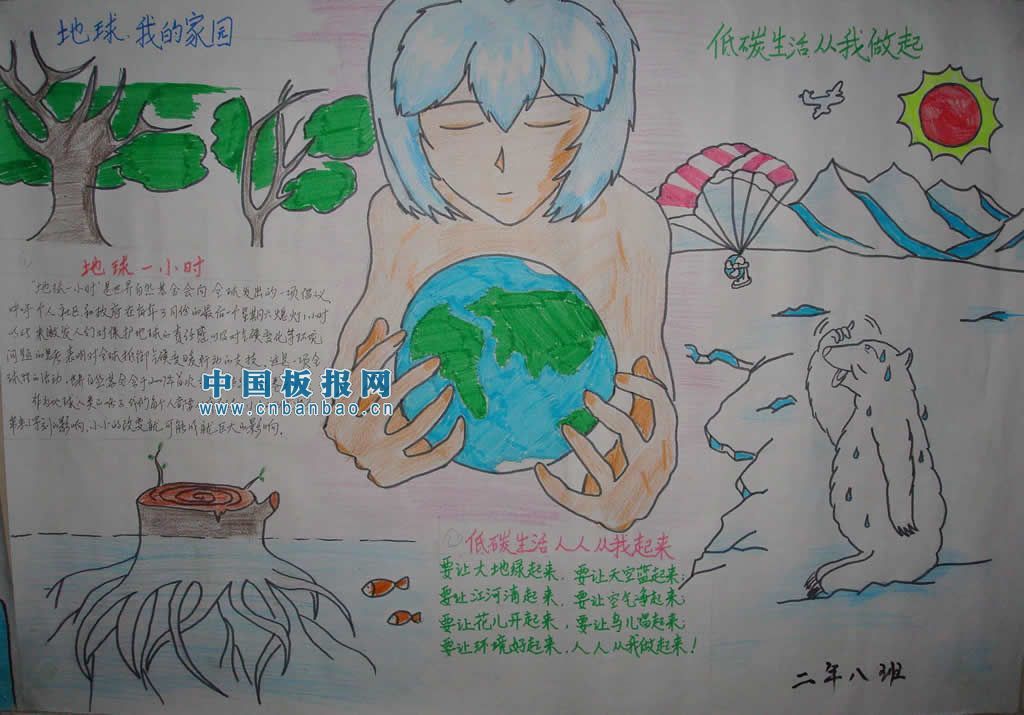 地球、我的家园
低碳生活从我做起
地球一小时
"地球一小时"是世界自然基金会向全球发出的一项倡议
呼吁个人、社区和政府在每年3月份的最后一个星期六熄灯1小时
以此来激发人们对保护地球的责任感以及对气候变化等环境
问题的思考表明对全球抵御气候变暖行动的支持。这是一项全
球性的活动，世界自然基金会于2007年首次
作为地球人类
带来等到的影响，小小的改变就可能成就巨大的影响。
中国板报网
www.cnbanbao.cn
低碳生活人人从我起来
要让大地绿起来，要让天空蓝起来；
要让江河清起来，要让空气净起来；
要让花儿开起来，要让鸟儿唱起来；
要让环境好起来，人人从我做起来！
二年八班